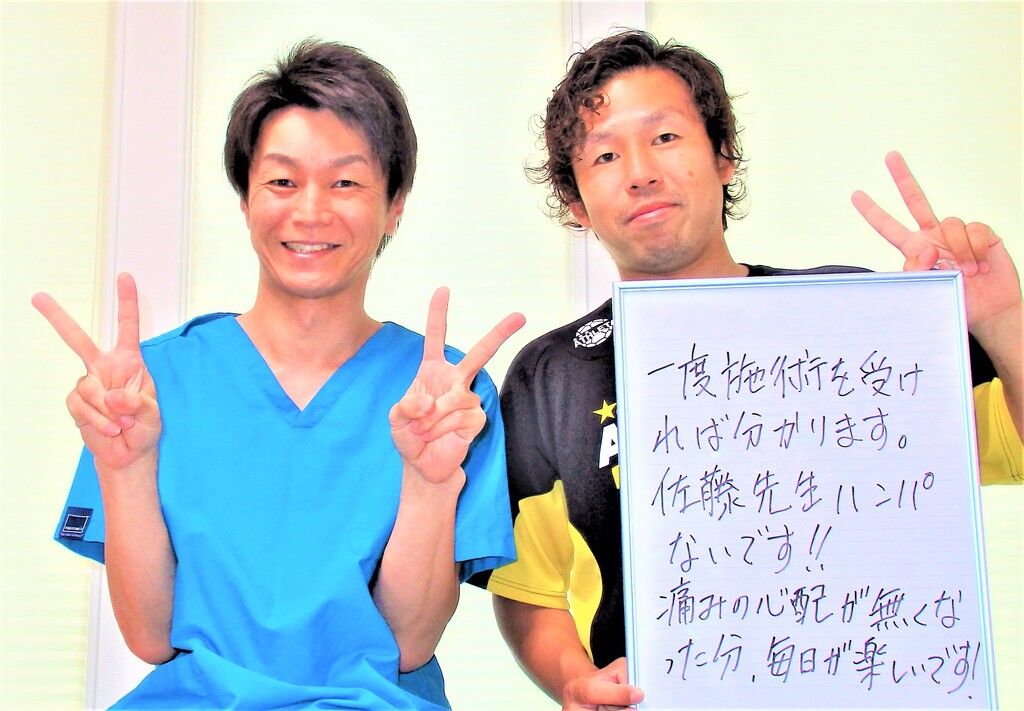 ATHLETA
一度施術を受け
れば分かります。
佐藤先生ハンパ
ないです!!
痛みの心配が無くな
った分、毎日が楽しいです!